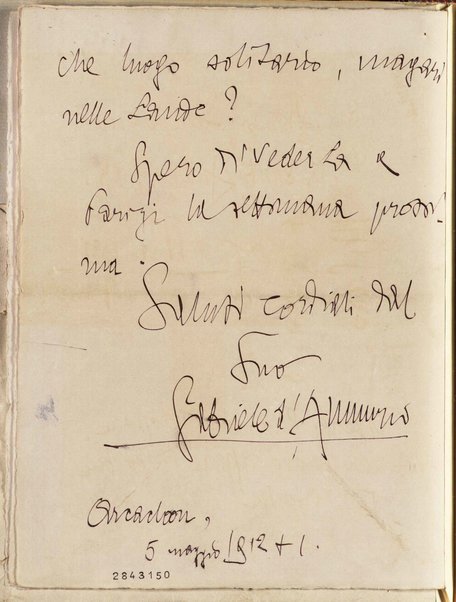 che luogo solitario, magari
nelle Lande?
Spero di veder La a
Parigi la settimana prossi-
ma.
Saluti cordiali dal
Suo
Gabriele d'Annunzio
Arcachon,
5 maggio 1912 + 1.
2843150